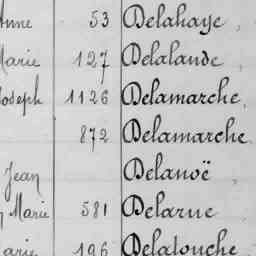 Anne 53 Delahaye,
Marie 127 Delalande,
Joseph 1126 Delamarche,
872 Delamarche
Jean Delanoë,
Marie 581 Delarue
Marie 196 Delatouche